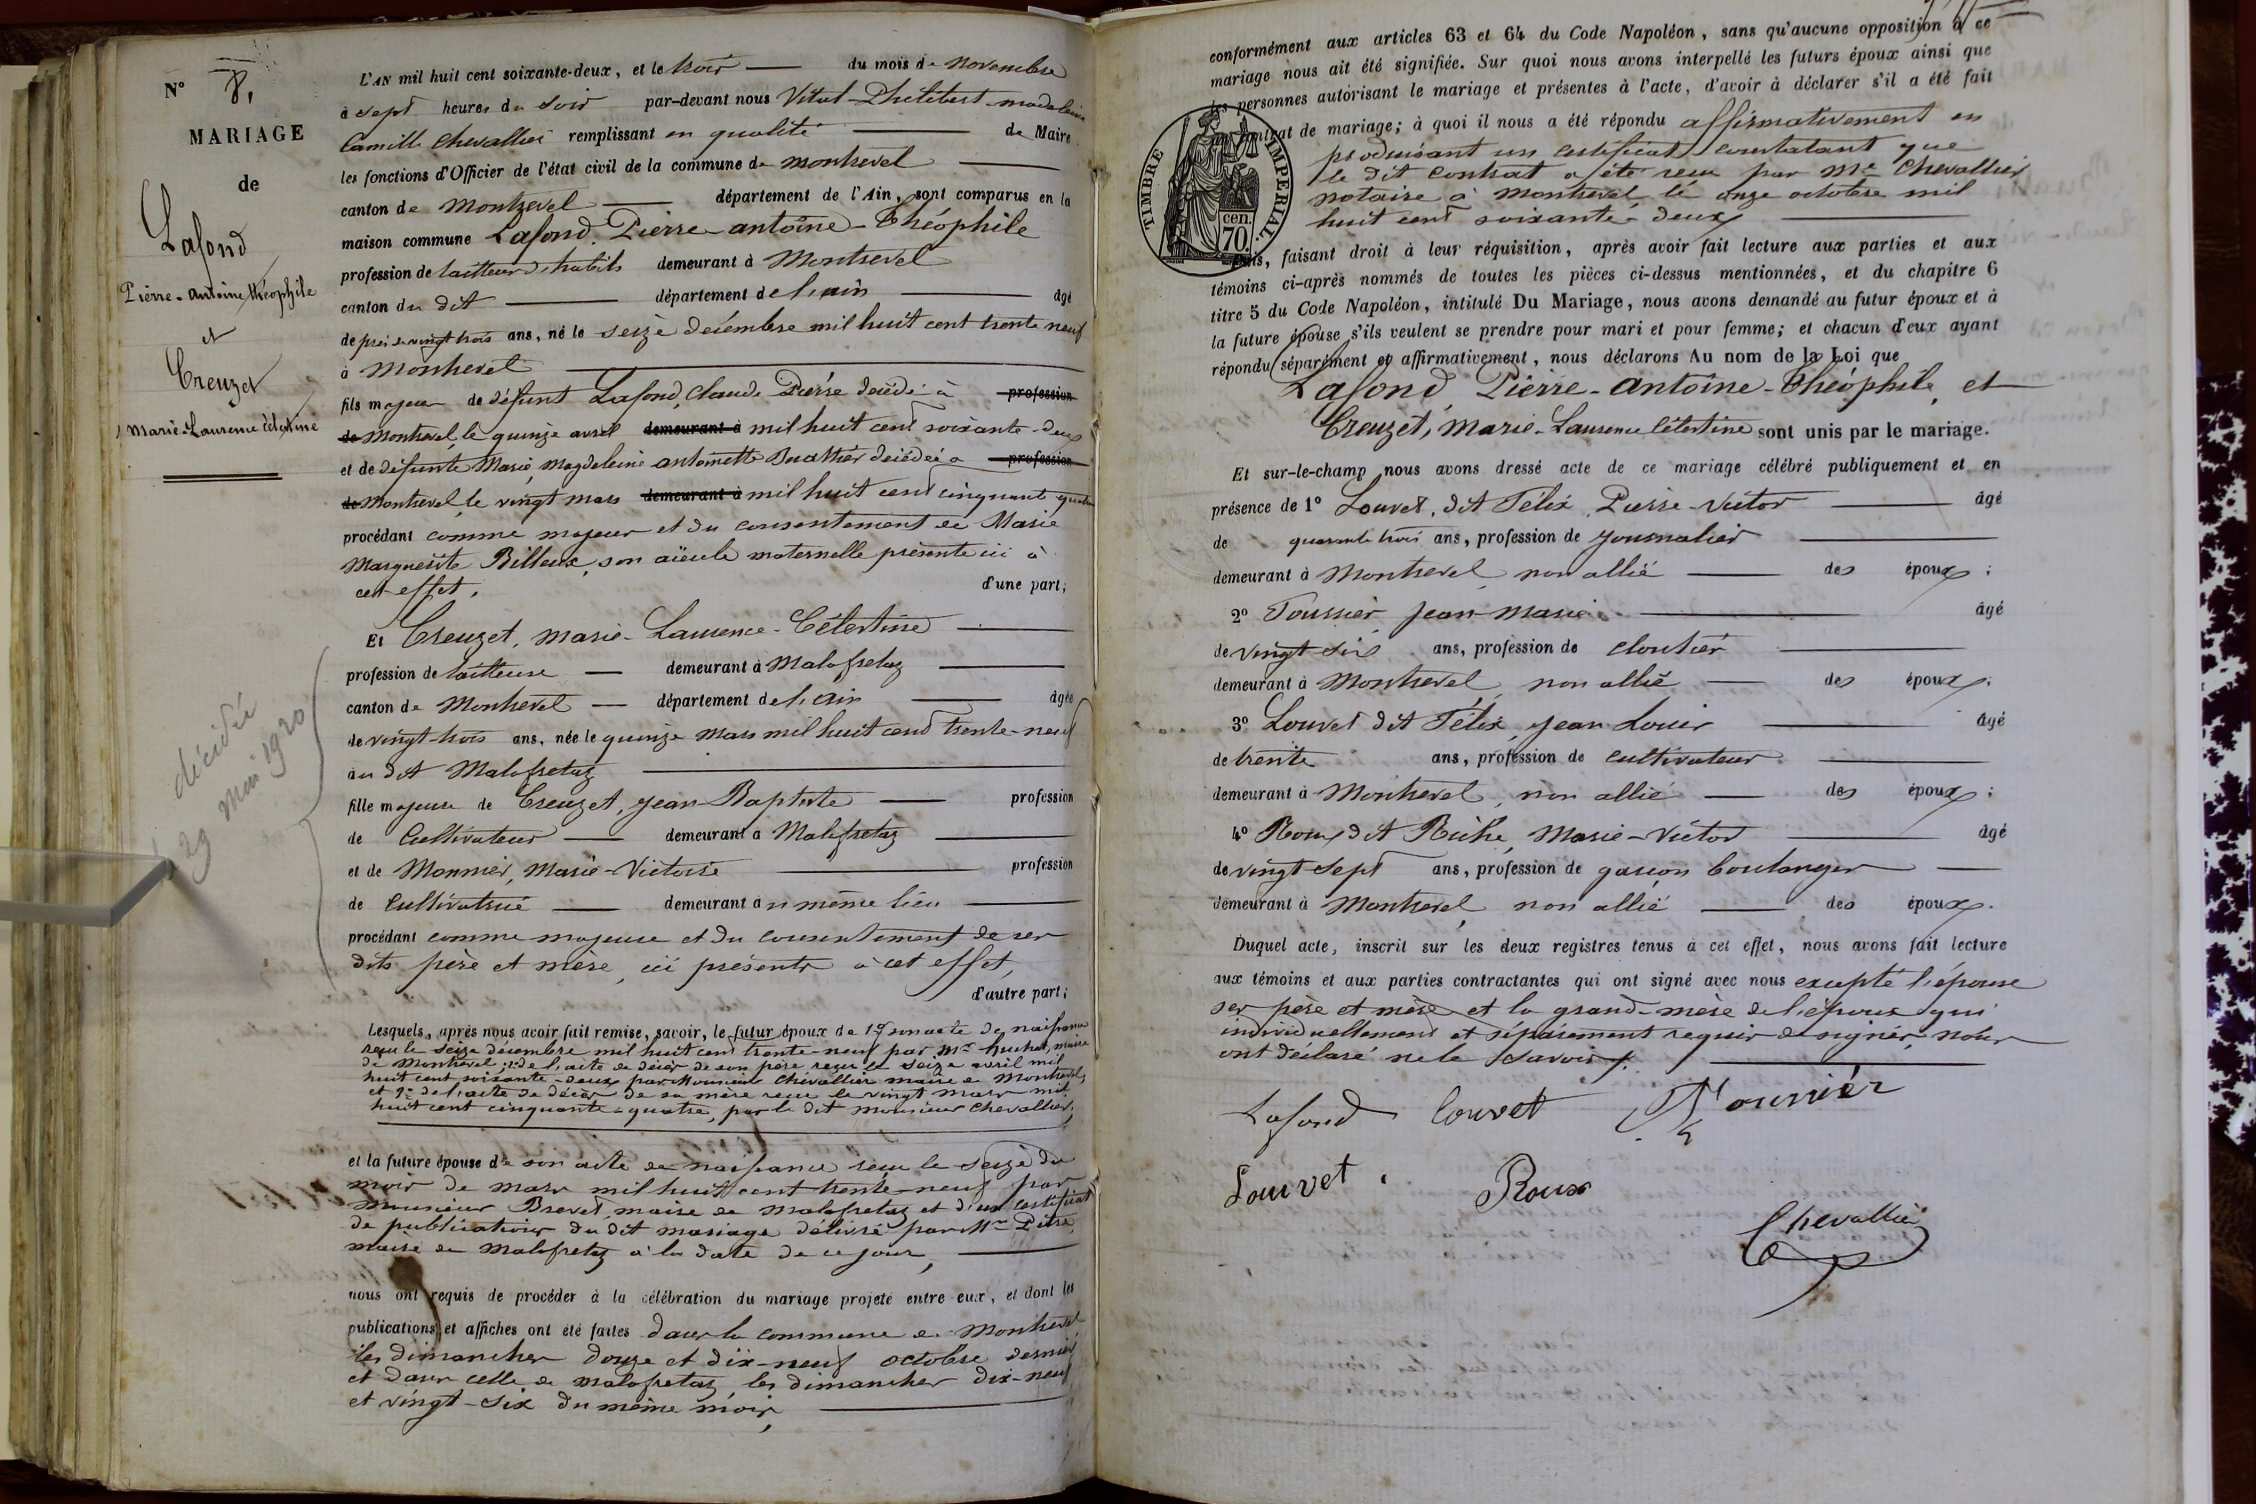 N° 8.
MARIAGE
de
Lafond
Pierre-antoine théophile
et
Creuzet
Marie-Laurence Célestine
décédée
29 mai 1920
L'AN mil huit cent soixante-deux, et le trois du mois de novembre
à sept heures du soir par-devant nous Vital-Philibert-madeleine
Camille Chevallier remplissant en qualité de Maire
les fonctions d'Officier de l'état civil de la commune de montrevel
canton de Montrevel département de l'Ain, sont comparus en la
maison commune Lafond, Pierre-antoine-Théophile
profession de tailleur d'habits demeurant à Montrevel
canton du dit département de l'ain âgé
de près de vingt trois ans, né le seize décembre mil huit cent trente neuf
à Montrevel
fils majeur de défunt Lafond, Claude-Pierre décédé à profession
de Montrevel, le quinze avril demeurant à mil huit cent soixante-deux
et de défunte Marie, Magdeleine antoinette Buathier décédée à profession
de Montrevel, le vingt mars demeurant à mil huit cent cinquante quatre
procédant comme majeur et du consentement de Marie
Marguerite Billoux, son aïeule maternelle présente ici à
cet effet, d'une part;
Et Creuzet, Marie-Laurence-Célestine
profession de tailleuse demeurant à Malafretaz
canton de Montrevel département de l'Ain âgée
de vingt-trois ans, née le quinze Mars mil huit cent trente-neuf
au dit Malafretaz
fille majeure de Creuzet, Jean-Baptiste profession
de Cultivateur demeurant à Malafretaz
et de Monnier, Marie-Victoire profession
de Cultivatrice demeurant au même lieu
procédant comme majeure et du consentement de ses
dits père et mère, ici présents à cet effet,
d'autre part;
Lesquels, après nous avoir fait remise, savoir, le futur époux de 1° son acte de naissance
reçu le seize décembre mil huit cent trente-neuf par Mr huchet, maire
de Montrevel; 2° de l'acte de décès de son père reçu le seize avril mil
huit cent soixante-deux par Monsieur Chevallier maire de Montrevel,
et 3° de l'acte de décès de sa mère reçu le vingt mars mil
huit cent cinquante-quatre, par le dit monsieur Chevallier,
et la future épouse de son acte de naissance reçu le seize du
mois de mars mil huit cent trente-neuf par
Monsieur Brevet, maire de Malafretaz et d'un certificat
de publications du dit mariage délivré par Mr Pitre,
maire de Malafretaz à la date de ce jour,
nous ont requis de procéder à la célébration du mariage projeté entre eux, et dont les
publications et affiches ont été faites dans la commune de Montrevel
les dimanches douze et dix-neuf octobre dernier
et dans celle de Malafretaz, les dimanches dix-neuf
et vingt-six du même mois,
conformément aux articles 63 et 64 du Code Napoléon, sans qu'aucune opposition à ce
mariage nous ait été signifiée. Sur quoi nous avons interpellé les futurs époux ainsi que
les personnes autorisant le mariage et présentes à l'acte, d'avoir à déclarer s'il a été fait
contrat de mariage; à quoi il nous a été répondu affirmativement en
produisant un certificat constatant que
le dit contrat a été reçu par Me Chevallier
notaire à Montrevel, le onze octobre mil
huit cent soixante-deux
TIMBRE IMPERIAL.
cen.
70.
faisant droit à leur réquisition, après avoir fait lecture aux parties et aux
témoins ci-après nommés de toutes les pièces ci-dessus mentionnées, et du chapitre 6
titre 5 du Code Napoléon, intitulé Du Mariage, nous avons demandé au futur époux et à
la future épouse s'ils veulent se prendre pour mari et pour femme; et chacun d'eux ayant
répondu séparément et affirmativement, nous déclarons Au nom de la Loi que
Lafond, Pierre-antoine-Théophile, et
Creuzet, Marie-Laurence Célestine sont unis par le mariage.
Et sur-le-champ nous avons dressé acte de ce mariage célébré publiquement et en
présence de 1° Louvet, dit Félix, Pierre-Victor âgé
de quarante trois ans, profession de Journalier
demeurant à Montrevel, non allié des époux;
2° Toussier Jean-Marie âgé
de vingt six ans, profession de cloutier
demeurant à Montrevel, non allié des époux;
3° Louvet dit Félix, Jean Louis âgé
de trente ans, profession de cultivateur
demeurant à Montrevel, non allié des époux;
4° Roux dit Riche, Marie-Victor âgé
de vingt sept ans, profession de garçon boulanger
demeurant à Montrevel, non allié des époux.
Duquel acte, inscrit sur les deux registres tenus à cet effet, nous avons fait lecture
aux témoins et aux parties contractantes qui ont signé avec nous excepté l'épouse
ses père et mère et la grand-mère de l'époux qui
individuellement et séparément requis de signer nous
ont déclaré ne le savoir.
Lafond Louvet
Louvet. Roux
Chevallier